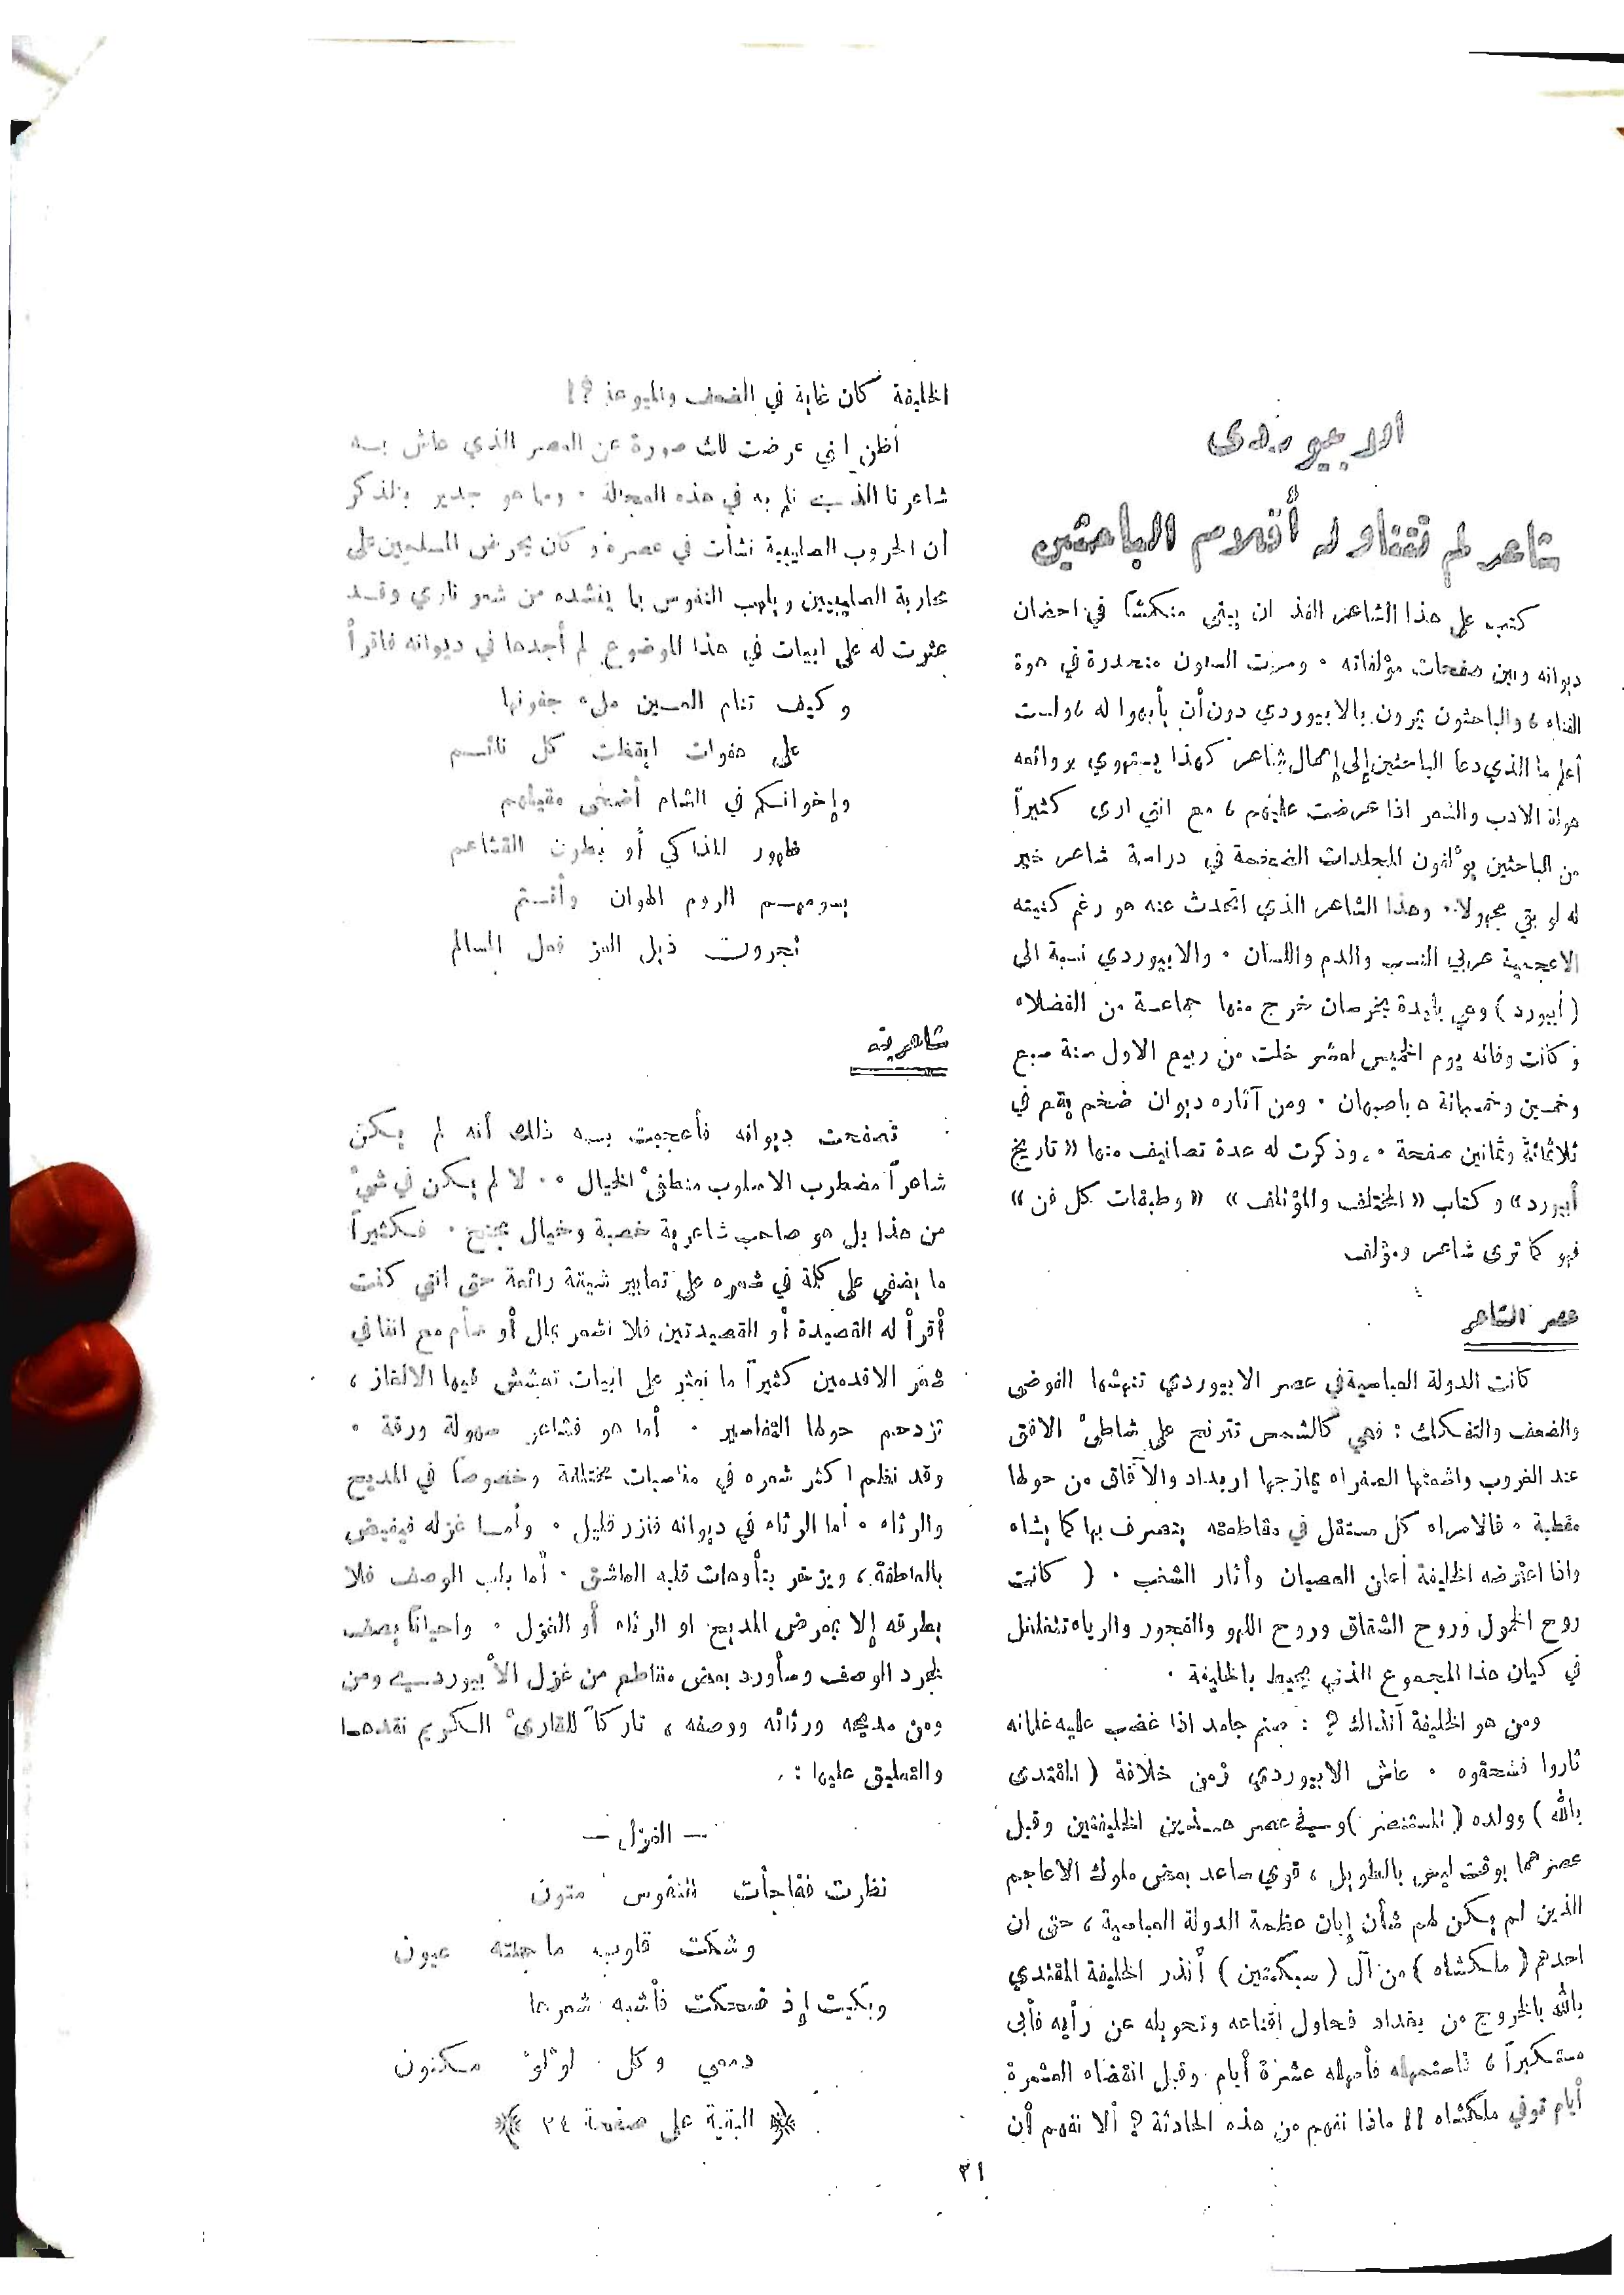 الابيوردي
شاعر لم تتناوله أقلام الباحثين
كتب على هذا الشاعر الفذ ان يبقى منكمشاً في احضان
ديوانه وبين صفحات مؤلفاته . ومرت السنون منحدرة في هوة
الفناء ، والباحثون يمرون بالابيوردي دون أن يأبهوا له ، ولست
أعلم ما الذي دعا الباحثين إلى إهمال شاعر كهذا يستهوي بروائعه
هواة الادب والشعر اذا عرضت عليهم ، مع انني ارى كثيراً
من الباحثين يؤلفون المجلدات الضخمة في دراسة شاعر خير
له لو بقي مجهولا . وهذا الشاعر الذي اتحدث عنه هو رغم كنيته
الاعجمية عربي النسب والدم واللسان . والابيوردي نسبة الى
( أبيورد ) وهي بليدة بخرسان خرج منها جماعة من الفضلاء
وكانت وفاته يوم الخميس لعشر خلت من ربيع الاول سنة سبع
وخمسين وخمسمائة ه باصبهان . ومن آثاره ديوان ضخم يقع في
ثلاثمائة وثمانين صفحة . وذكرت له عدة تصانيف منها « تاريخ
أبيورد » وكتاب « المختلف والمؤتلف » « وطبقات كل فن »
فهو كما ترى شاعر ومؤلف
عصر الشاعر
كانت الدولة العباسية في عصر الابيوردي تنهشها الفوضى
والضعف والتفكك : فهي كالشمس تترنح على شاطئ الافق
عند الغروب واشعتها الصفراء يمازجها اربداد والآفاق من حولها
مقطبة . فالامراء كل مستقل في مقاطعته يتصرف بها كما يشاء
واذا اعترضه الخليفة أعلن العصيان وأثار الشغب . ( كانت
روح الخمول وروح الشقاق وروح اللهو والفجور والرياء تتغلغل
في كيان هذا المجموع الذي يحيط بالخليفة .
ومن هو الخليفة آنذاك ? : صنم جامد اذا غضب عليه غلمانه
ثاروا فسحقوه . عاش الابيوردي زمن خلافة ( المقتدى
بالله ) وولده ( المستنصر ) وفي عصر هذين الخليفتين وقبل
عصرهما بوقت ليس بالطويل ، قوي ساعد بعض ملوك الاعاجم
الذين لم يكن لهم شأن إبان عظمة الدولة العباسية ، حتى ان
احدهم ( ملكشاه ) من آل ( سبكتين ) أنذر الخليفة المقتدي
بالله بالخروج من بغداد فحاول اقناعه وتحويله عن رأيه فأبى
مستكبراً ، فاستمهله فأمهله عشرة أيام . وقبل انقضاء العشرة
أيام توفي ملكشاه !! ماذا نفهم من هذه الحادثة ? ألا نفهم أن
الخليفة كان غاية في الضعف والميوعة ?!
أظن اني عرضت لك صورة عن العصر الذي عاش به
شاعرنا الذي نلم به في هذه العجالة . ومما هو جدير بالذكر
أن الحروب الصليبية نشأت في عصره وكان يحرض المسلمين على
محاربة الصليبيين ويلهب النفوس بما ينشده من شعر ناري وقد
عثرت له على ابيات في هذا الموضوع لم أجدها في ديوانه فاقرأ
وكيف تنام العين ملء جفونها
على هفوات ايقظت كل نائم
وإخوانكم في الشام أضحى مقيلهم
ظهور المذاكي أو بطون القشاعم
يسومهم الروم الهوان وأنتم
تجرون ذيل العز فعل المسالم
شاعريته
تصفحت ديوانه فأعجبت به ذلك أنه لم يكن
شاعراً مضطرب الاسلوب منطفئ الخيال . . لا لم يكن في شيءٍ
من هذا بل هو صاحب شاعرية خصبة وخيال مجنح . فكثيراً
ما يضفي على كلمة في شعره على تعابير شيقة رائعة حتى انني كنت
أقرأ له القصيدة أو القصيدتين فلا اشعر بملل أو سأم مع اننا في
شعر الاقدمين كثيراً ما نعثر على ابيات تعشش فيها الالغاز ،
تزدحم حولها التفاسير . أما هو فشاعر سهولة ورقة .
وقد نظم اكثر شعره في مناسبات مختلفة وخصوصاً في المديح
والرثاء . أما الرثاء في ديوانه فنزر قليل . وأما غزله فيفيض
بالعاطفة ، ويزخر بتأوهات قلبه العاشق . أما باب الوصف فلا
يطرقه إلا بمعرض المديح او الرثاء أو الغزل . واحياناً يصف
لمجرد الوصف وسأورد بعض مقاطع من غزل الأبيوردي ومن
ومن مديحه ورثائه ووصفه ، تاركاً للقارئ الكريم نقدها
والتعليق عليها : .
— الغزل —
نظرت ففاجأت النفوس متون
وشكت قلوب ما جنته عيون
وبكيت إذ ضحكت فأشبه ثغرها
دمعي وكل لؤلؤ مكنون
البقية على صفحة ٢٤
٢١